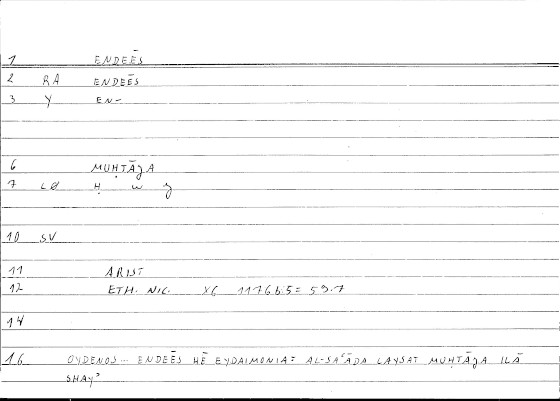 1 ENDEĒS
2 RA ENDEĒS
3 Y EN-
6 MUḤTĀǦA
7 LØ Ḥ W Ǧ
10 SV
11 ARIST
12 ETH. NIC. X6 1176b.5 = 59.7
14
16 OYDENOS... ENDEĒS HĒ EYDAIMONIA: AL-SAʿĀDA LAYSAT MUḤTĀǦA ILĀ
SHAYʾ